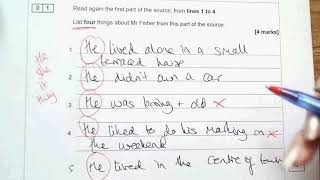 0 1
Read again the first part of the source, from lines 1 to 4.
List four things about Mr Fisher from this part of the source.
[4 marks]
He
she
or
they
1 He lived alone in a small
terraced house
2 He didn't own a car
3 He was boring + old x
4 He liked to do his marking on x
the weekend
5 He lived in the centre of town